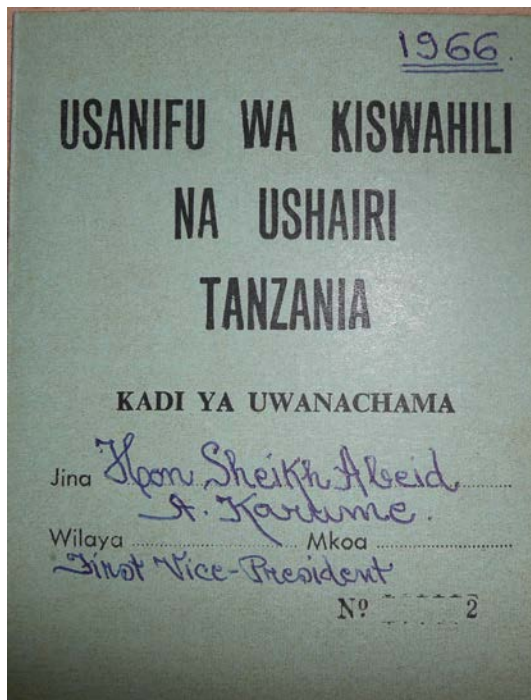 1966.
USANIFU WA KISWAHILI
NA USHAIRI
TANZANIA
KADI YA UWANACHAMA
Jina Hon. Sheikh Abeid
A. Karume.
Wilaya Mkoa
First Vice-President
Nº 2